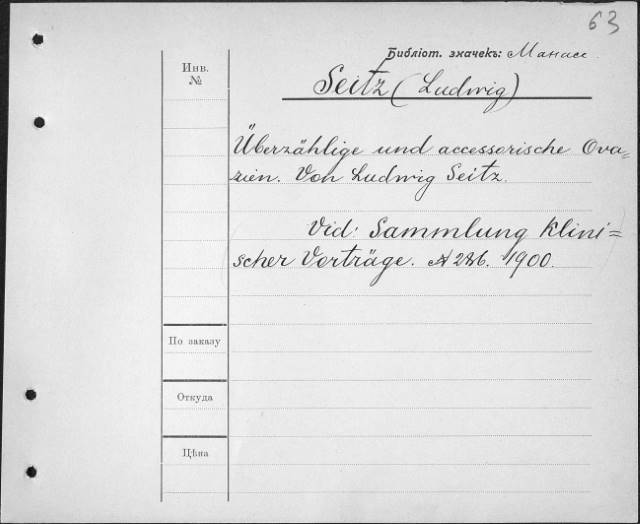 63
Библіот. значекъ: Манасс
Инв.
№
Seitz (Ludwig)
Überzählige und accessorische Ova=
rien. Von Ludwig Seitz.
Vid: Sammlung klini=
scher Vorträge. № 286. 1900.
По заказу
Откуда
Цѣна